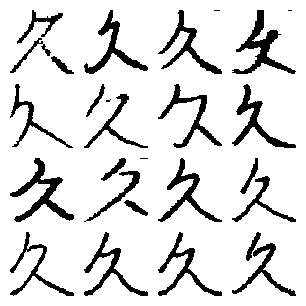 久久久久
久久久久
久久久久
久久久久